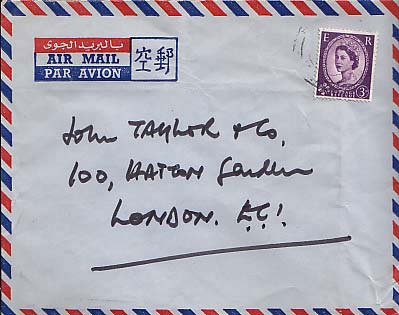 بالبريد الجوى
AIR MAIL
PAR AVION
空郵
E R
3D
John TAYLOR & Co,
100, HATTON Garden
LONDON. E.C.1.